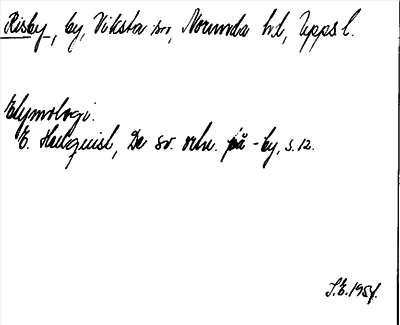 Risby, by, Viksta sn, Norunda hd, Upps l.
Etymologi.
E. Hellquist, De sv. ortn. på -by, s. 12.
S.E. 1954.